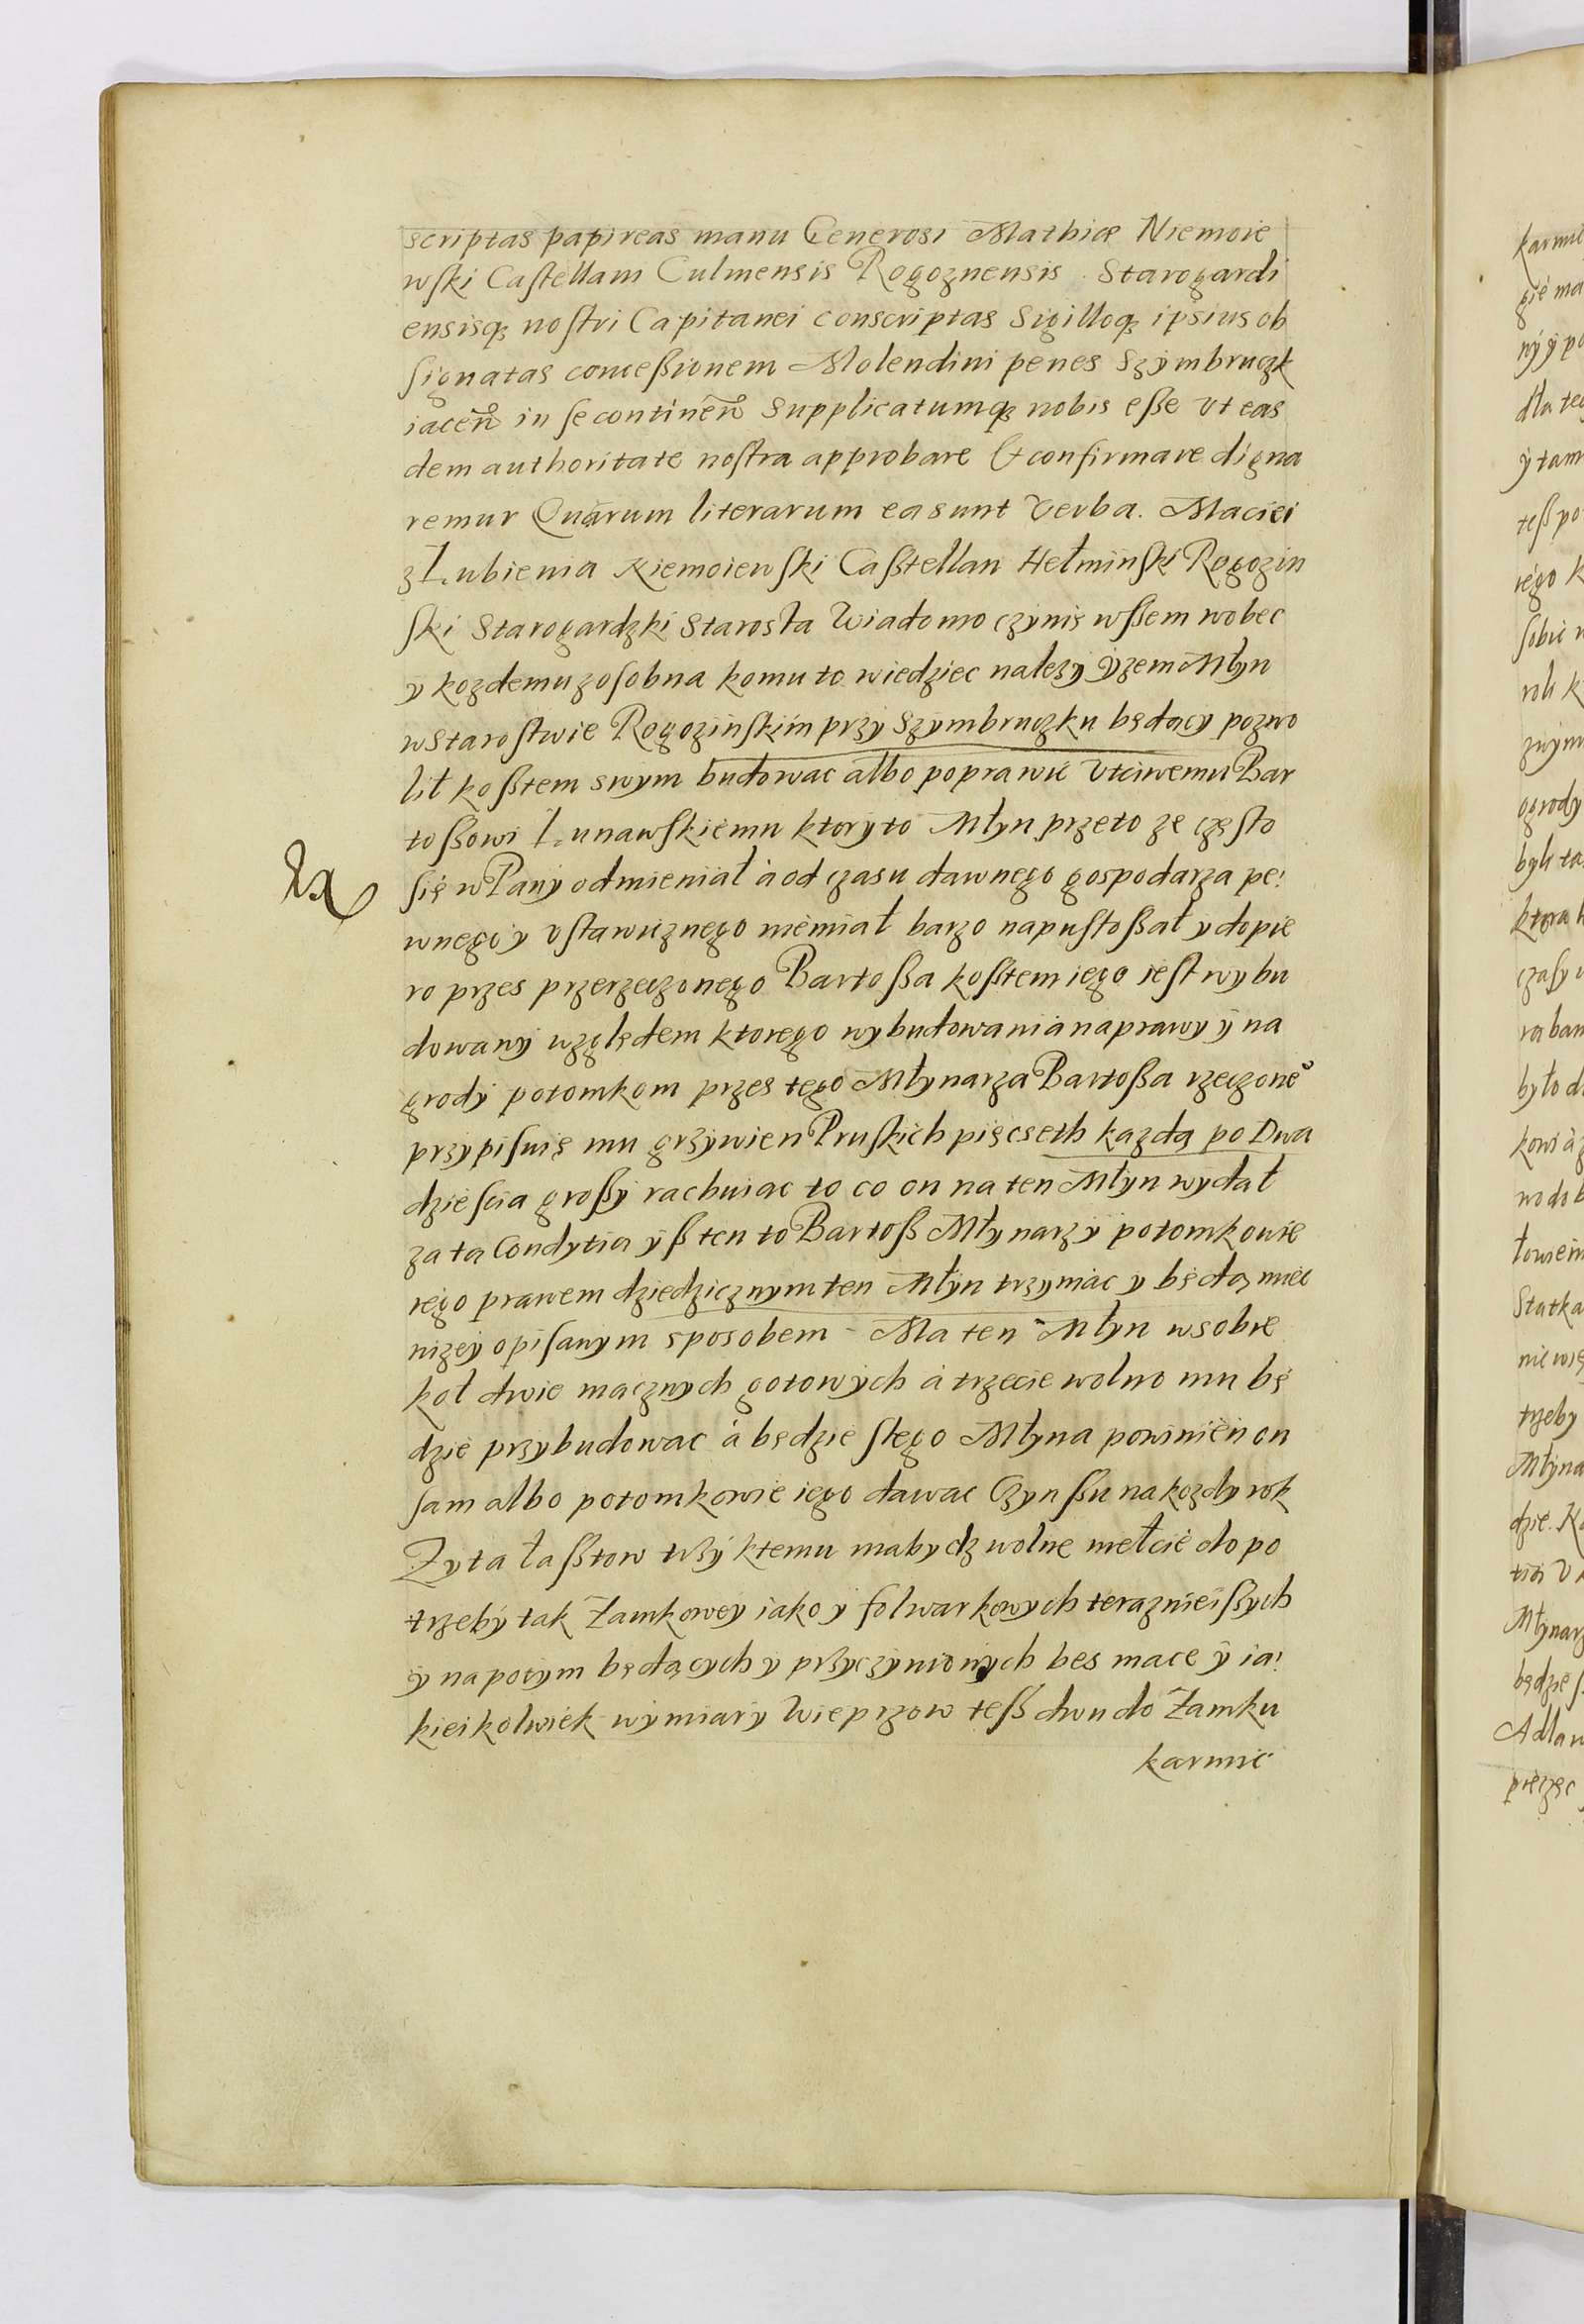 scriptas papireas manu Generosi Mathiæ Niemoie
wſki Caſtellani Culmensis Rogoznensis Starogardi
ensisq; noſtri Capitanei conscriptas Sigilloq; ipsius ob
ſignatas conceßionem Molendini penes Szymbruczk
iaceñ in ſe contineñ Supplicatumq; nobis eße vt eas
dem authoritate noſtra approbare & confirmare digna
remur Quarum literarum ea sunt verba. Maciei
z Łubienia Niemoiewſki Caßtellan Hełminſki Rogozin
ſki Starogardzki Starosta Wiadomo czynię wßem wobec
y kozdemu zoſobna komu to wiedziec nalezy yzem Młyn
w Staroſtwie Rogozinſkim przy Szymbruczku będący pozwo
lił koßtem swym budowac albo poprawic vtciwemu Bar
toßowi Łunawſkiemu ktory to Młyn przeto ze częſto
się w Pany odmieniał à od czasu dawnego gospodarza pe
wnego y vſtawicznego niemiał barzo napuſtoßał y dopie
ro przes przerzeczonego Bartoßa koßtem iego ieſt wybu
dowany względem ktorego wybudowania naprawy y na
grody potomkom przes tego Młynarza Bartoßa rzeczone°
przypiſuię mu grzywien Pruſkich pięcseth kazdą po Dwa
dzieſcia großy rachuiac to co on na ten Młyn wydał
za tą Condytią yß ten to Bartoß Młynarz y potomkowie
iego prawem dziedzicznym ten Młyn trzymac y będą miec
nizey opiſanym sposobem - Ma ten Młyn w sobie
koł dwie macznych gotowych à trzecie wolno mu bę
dzie przybudowac à będzie ſtego Młyna powinien on
ſam albo potomkowie iego dawac Czynßu na kozdy rok
Zyta łaßtow trzy ktemu ma bydz wolne mełcie do po
trzeby tak Zamkowey iako y folwarkowych teraznieißych
y na potym będących y przyczynionych bes mace y ia
kieikolwiek wymiary Wieprzow teß dwu do Zamku
karmic